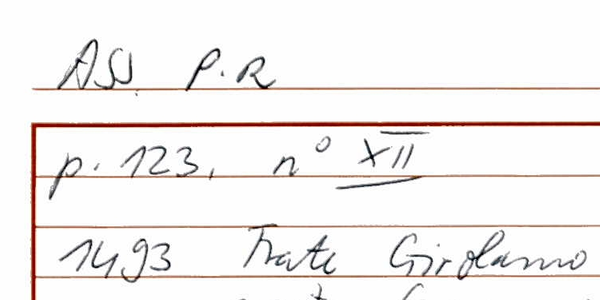 ASS P.R
p. 123, n° XII
1493 Frate Girolamo